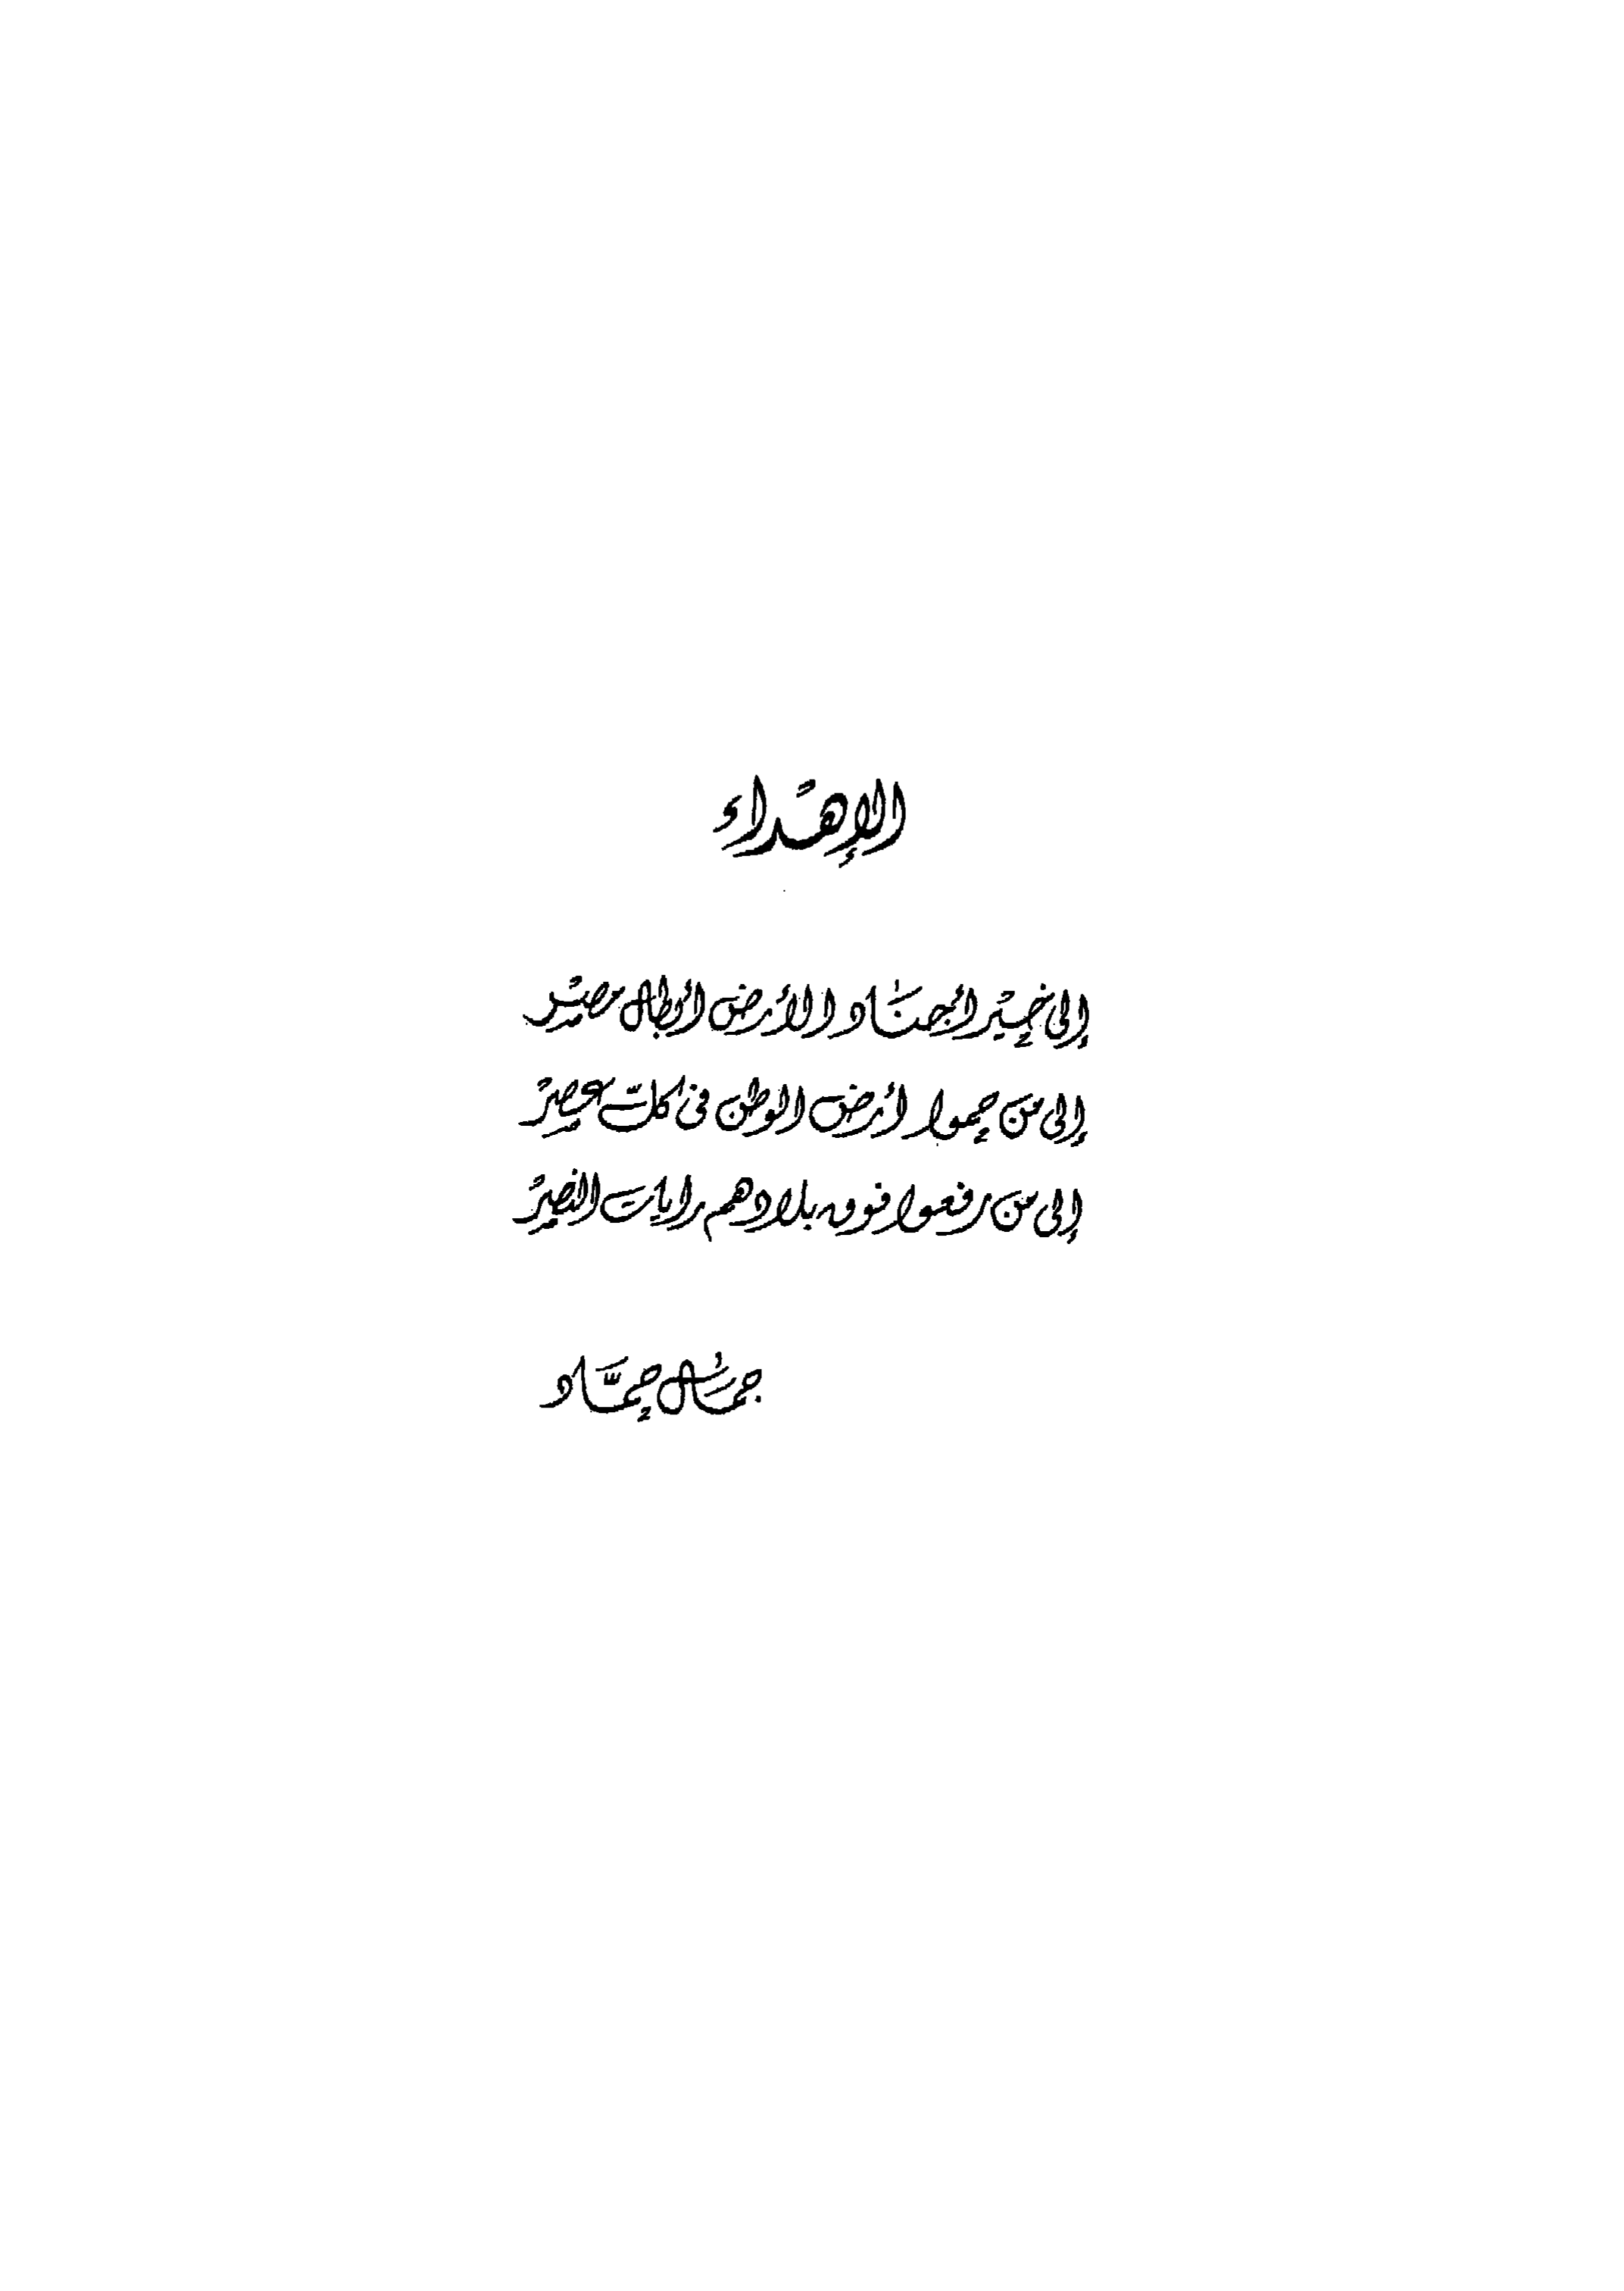 الإهداء
إلى خير أجناد الأرض أبطال مصر
إلى من حموا أرض الوطن فى كل عصر
إلى من رفعوا فوق بلادهم رايات النصر
جمال حمّاد